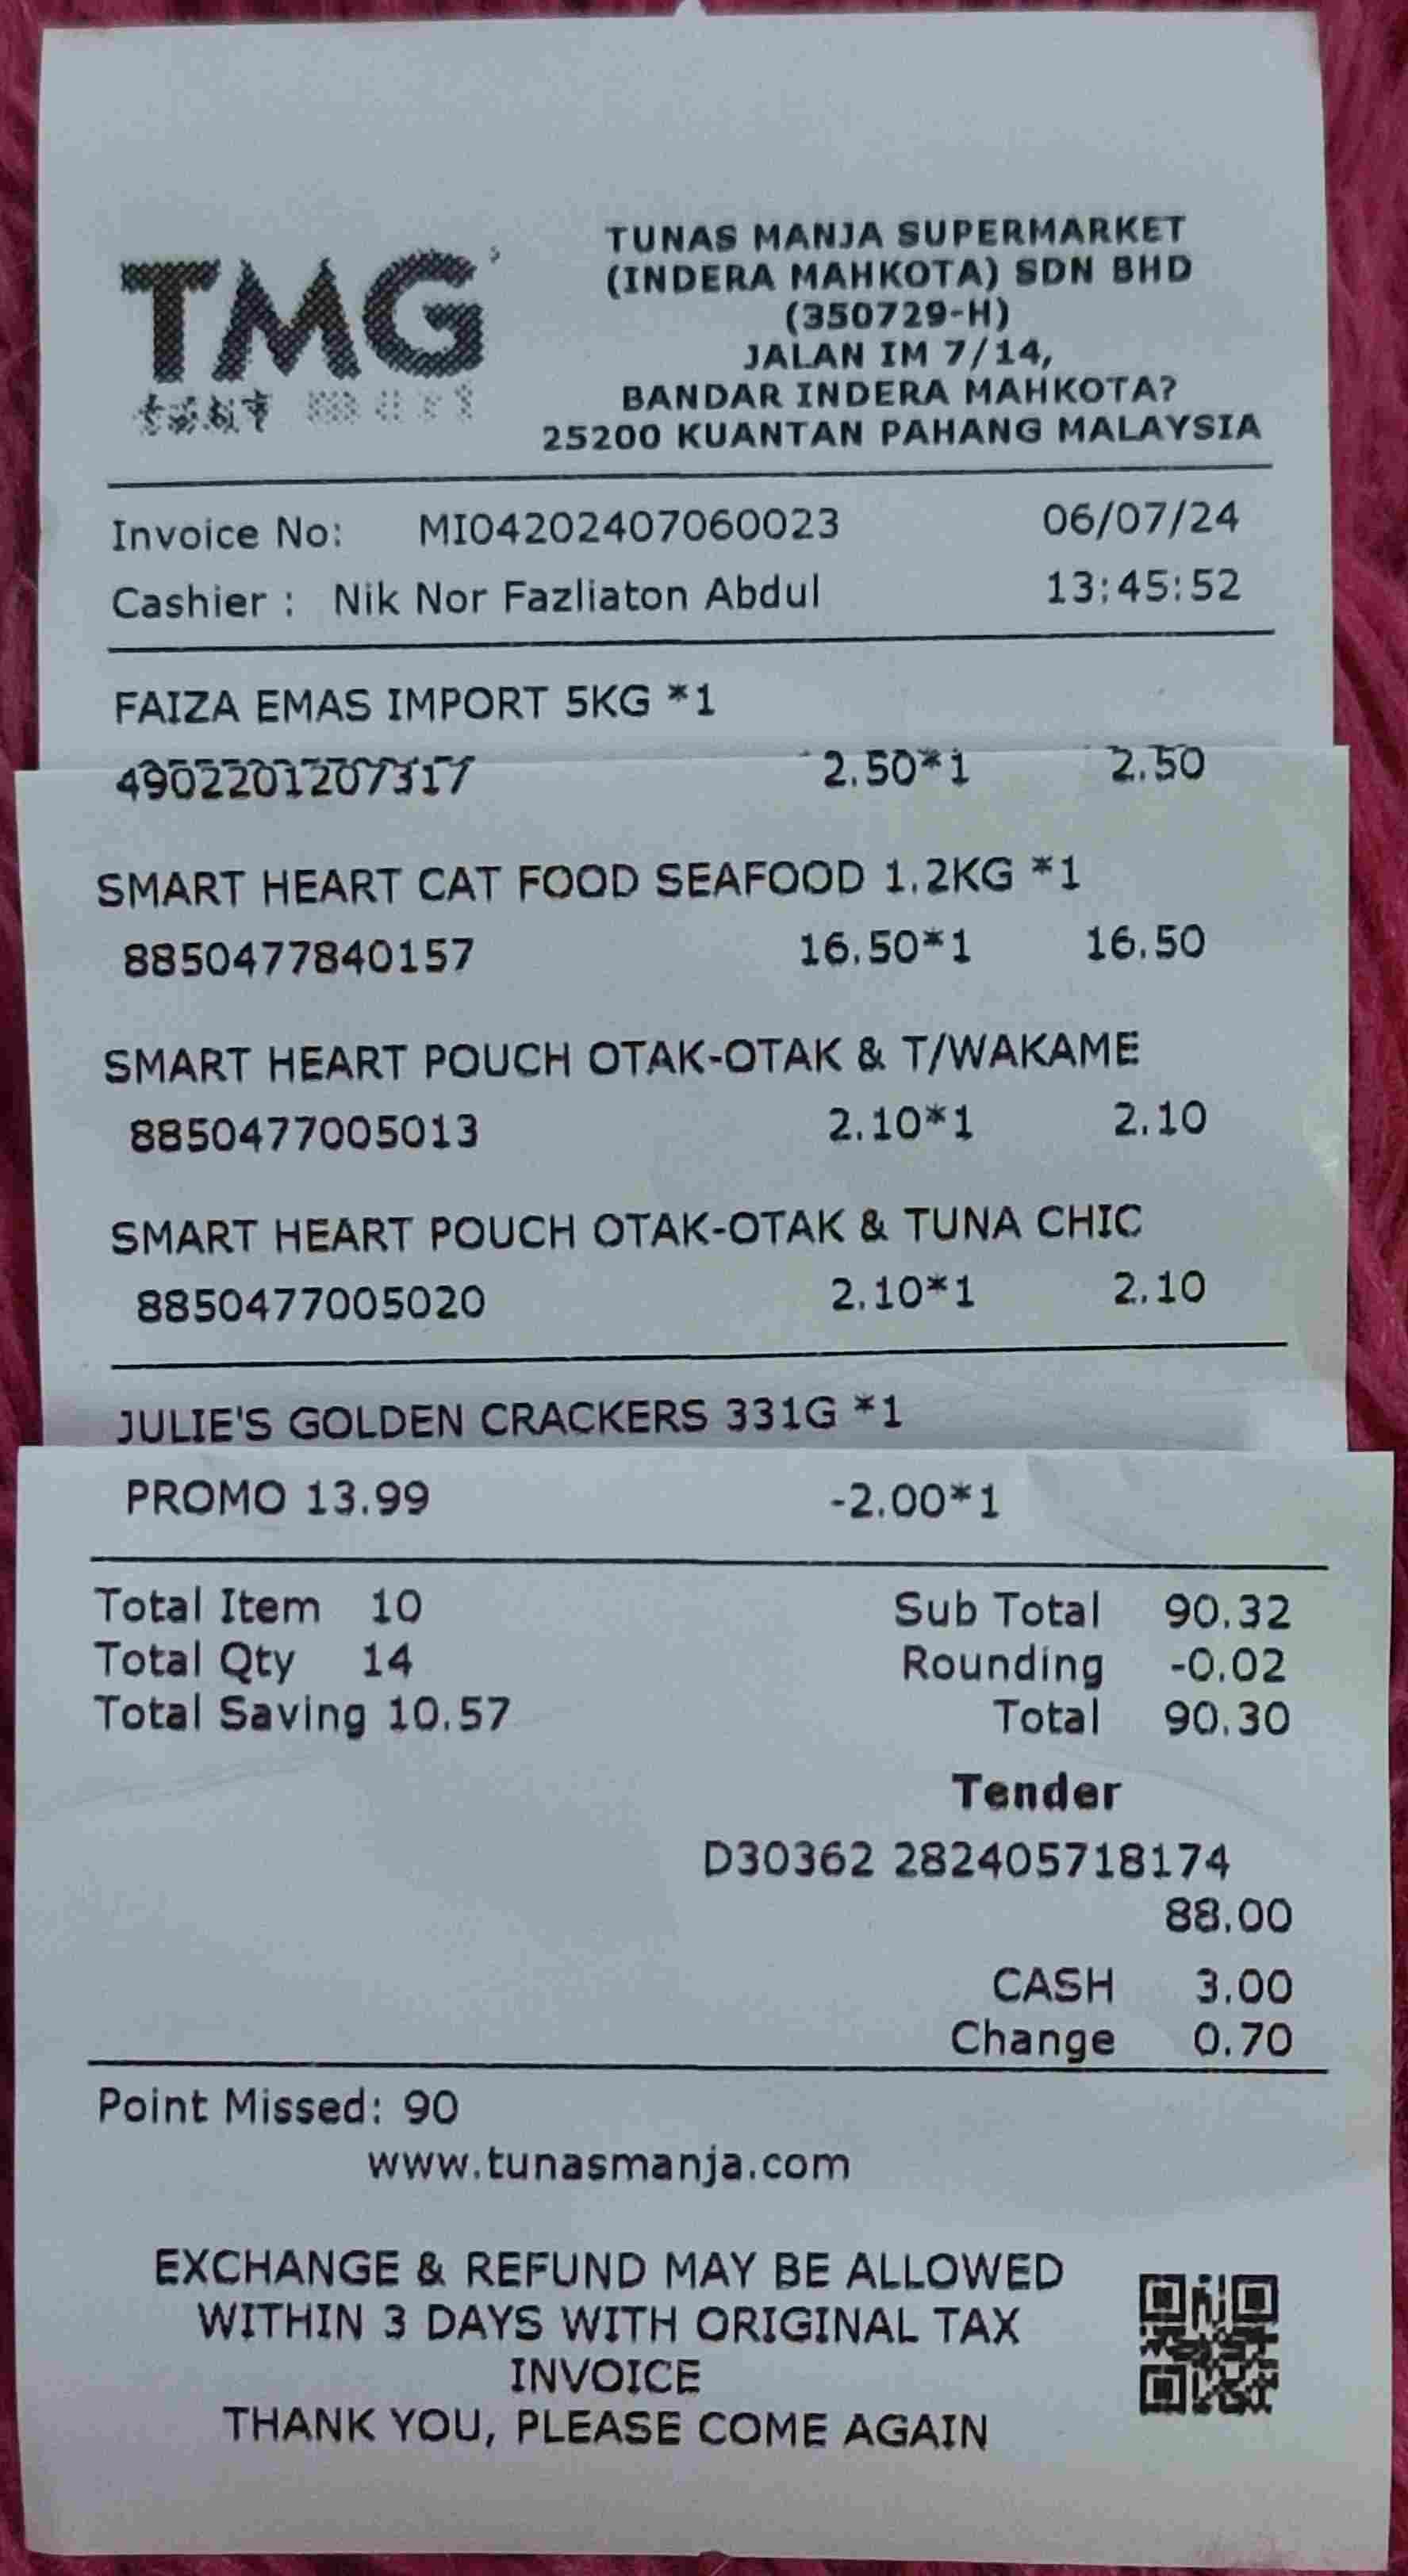 TMG
TUNAS MANJA SUPERMARKET
(INDERA MAHKOTA) SDN BHD
(350729-H)
JALAN IM 7/14,
BANDAR INDERA MAHKOTA?
25200 KUANTAN PAHANG MALAYSIA
Invoice No: MI04202407060023 06/07/24
Cashier : Nik Nor Fazliaton Abdul 13:45:52
FAIZA EMAS IMPORT 5KG *1
4902201207317 2.50*1 2.50
SMART HEART CAT FOOD SEAFOOD 1.2KG *1
8850477840157 16.50*1 16.50
SMART HEART POUCH OTAK-OTAK & T/WAKAME
8850477005013 2.10*1 2.10
SMART HEART POUCH OTAK-OTAK & TUNA CHIC
8850477005020 2.10*1 2.10
JULIE'S GOLDEN CRACKERS 331G *1
PROMO 13.99 -2.00*1
Total Item 10 Sub Total 90.32
Total Qty 14 Rounding -0.02
Total Saving 10.57 Total 90.30
Tender
D30362 282405718174
88.00
CASH 3.00
Change 0.70
Point Missed: 90
www.tunasmanja.com
EXCHANGE & REFUND MAY BE ALLOWED
WITHIN 3 DAYS WITH ORIGINAL TAX
INVOICE
THANK YOU, PLEASE COME AGAIN